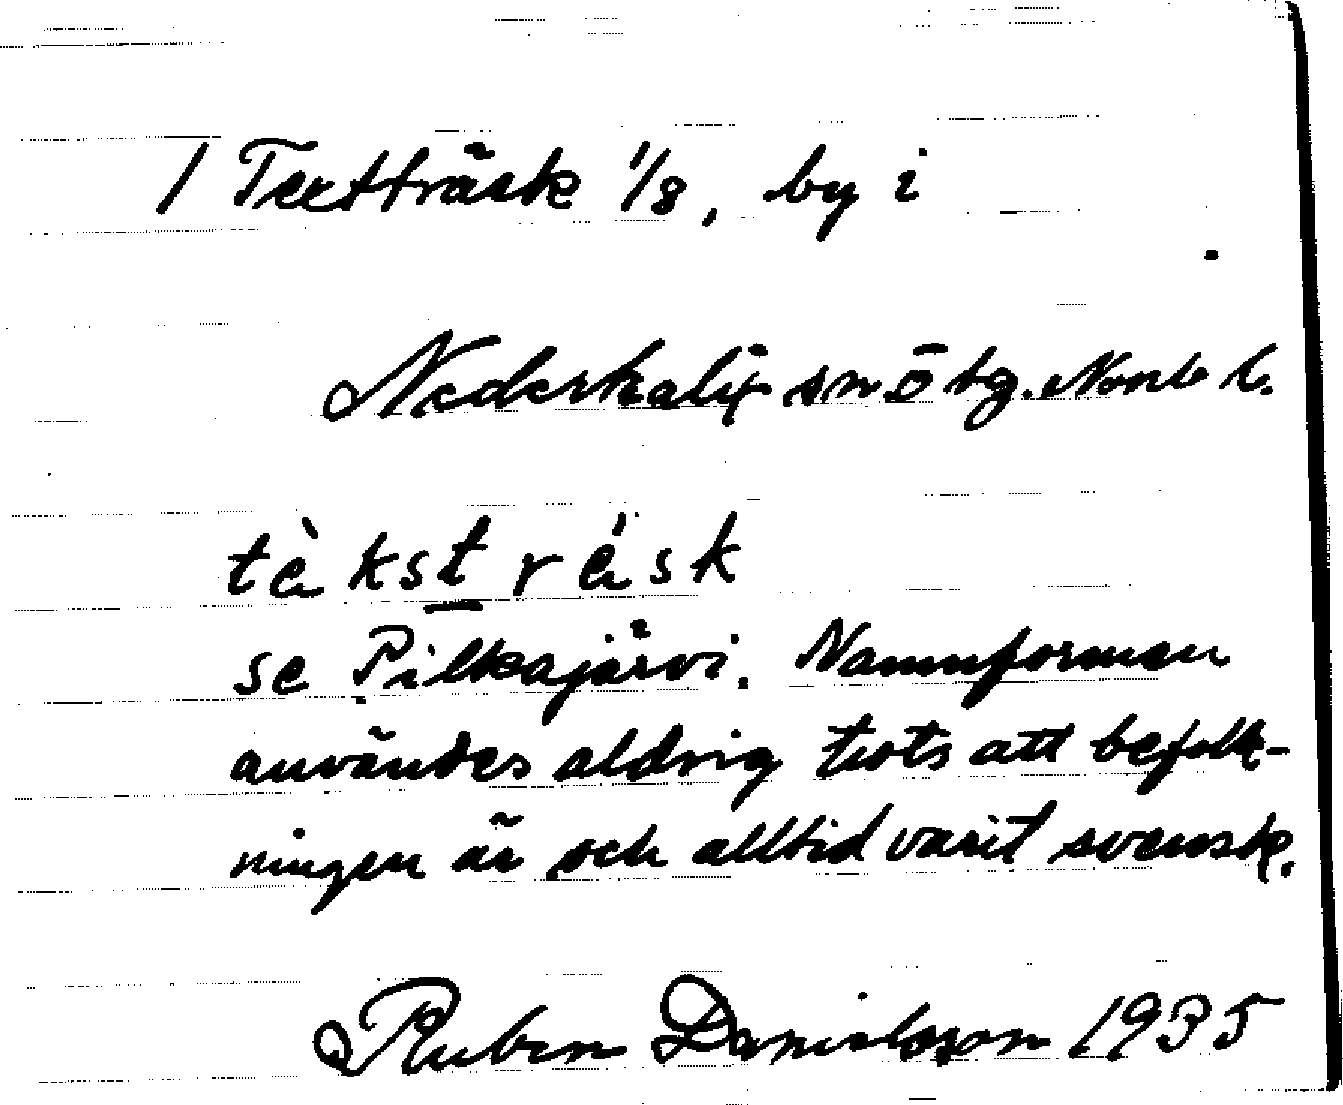 / Textträsk 1/8, by i
Nederkalix sn. ö bg. Norrb l.
tèkst résk
se Pilkajärvi. Namnformen
användes aldrig trots att befolk-
ningen är och alltid varit svensk.
Ruben Danielsson 1935